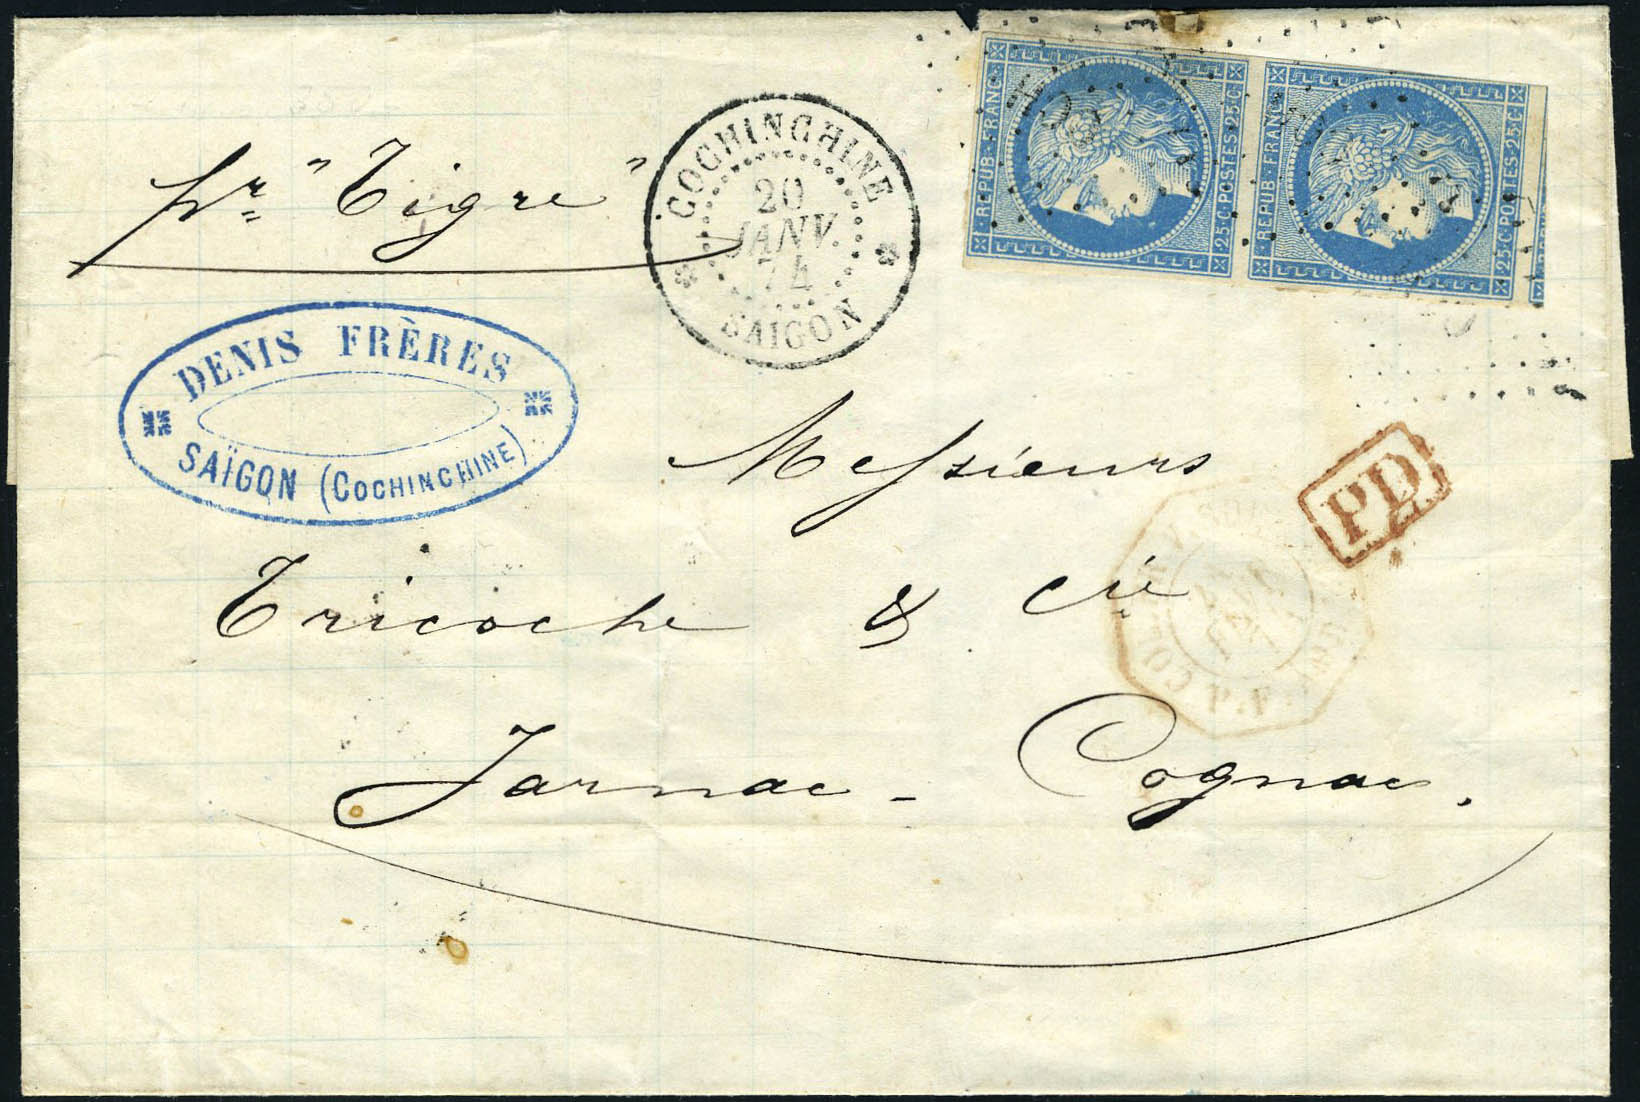 pr "Tigre"
COCHINCHINE
20
JANV.
74
SAIGON
REPUB·FRANC·
25·C·POSTES·25C·
REPUB·FRANC·
25·C·POSTES·25·C·
DENIS FRÈRES
SAÏGON (COCHINCHINE)
PD
Messieurs
Tricoche & Cie
Jarnac - Cognac.